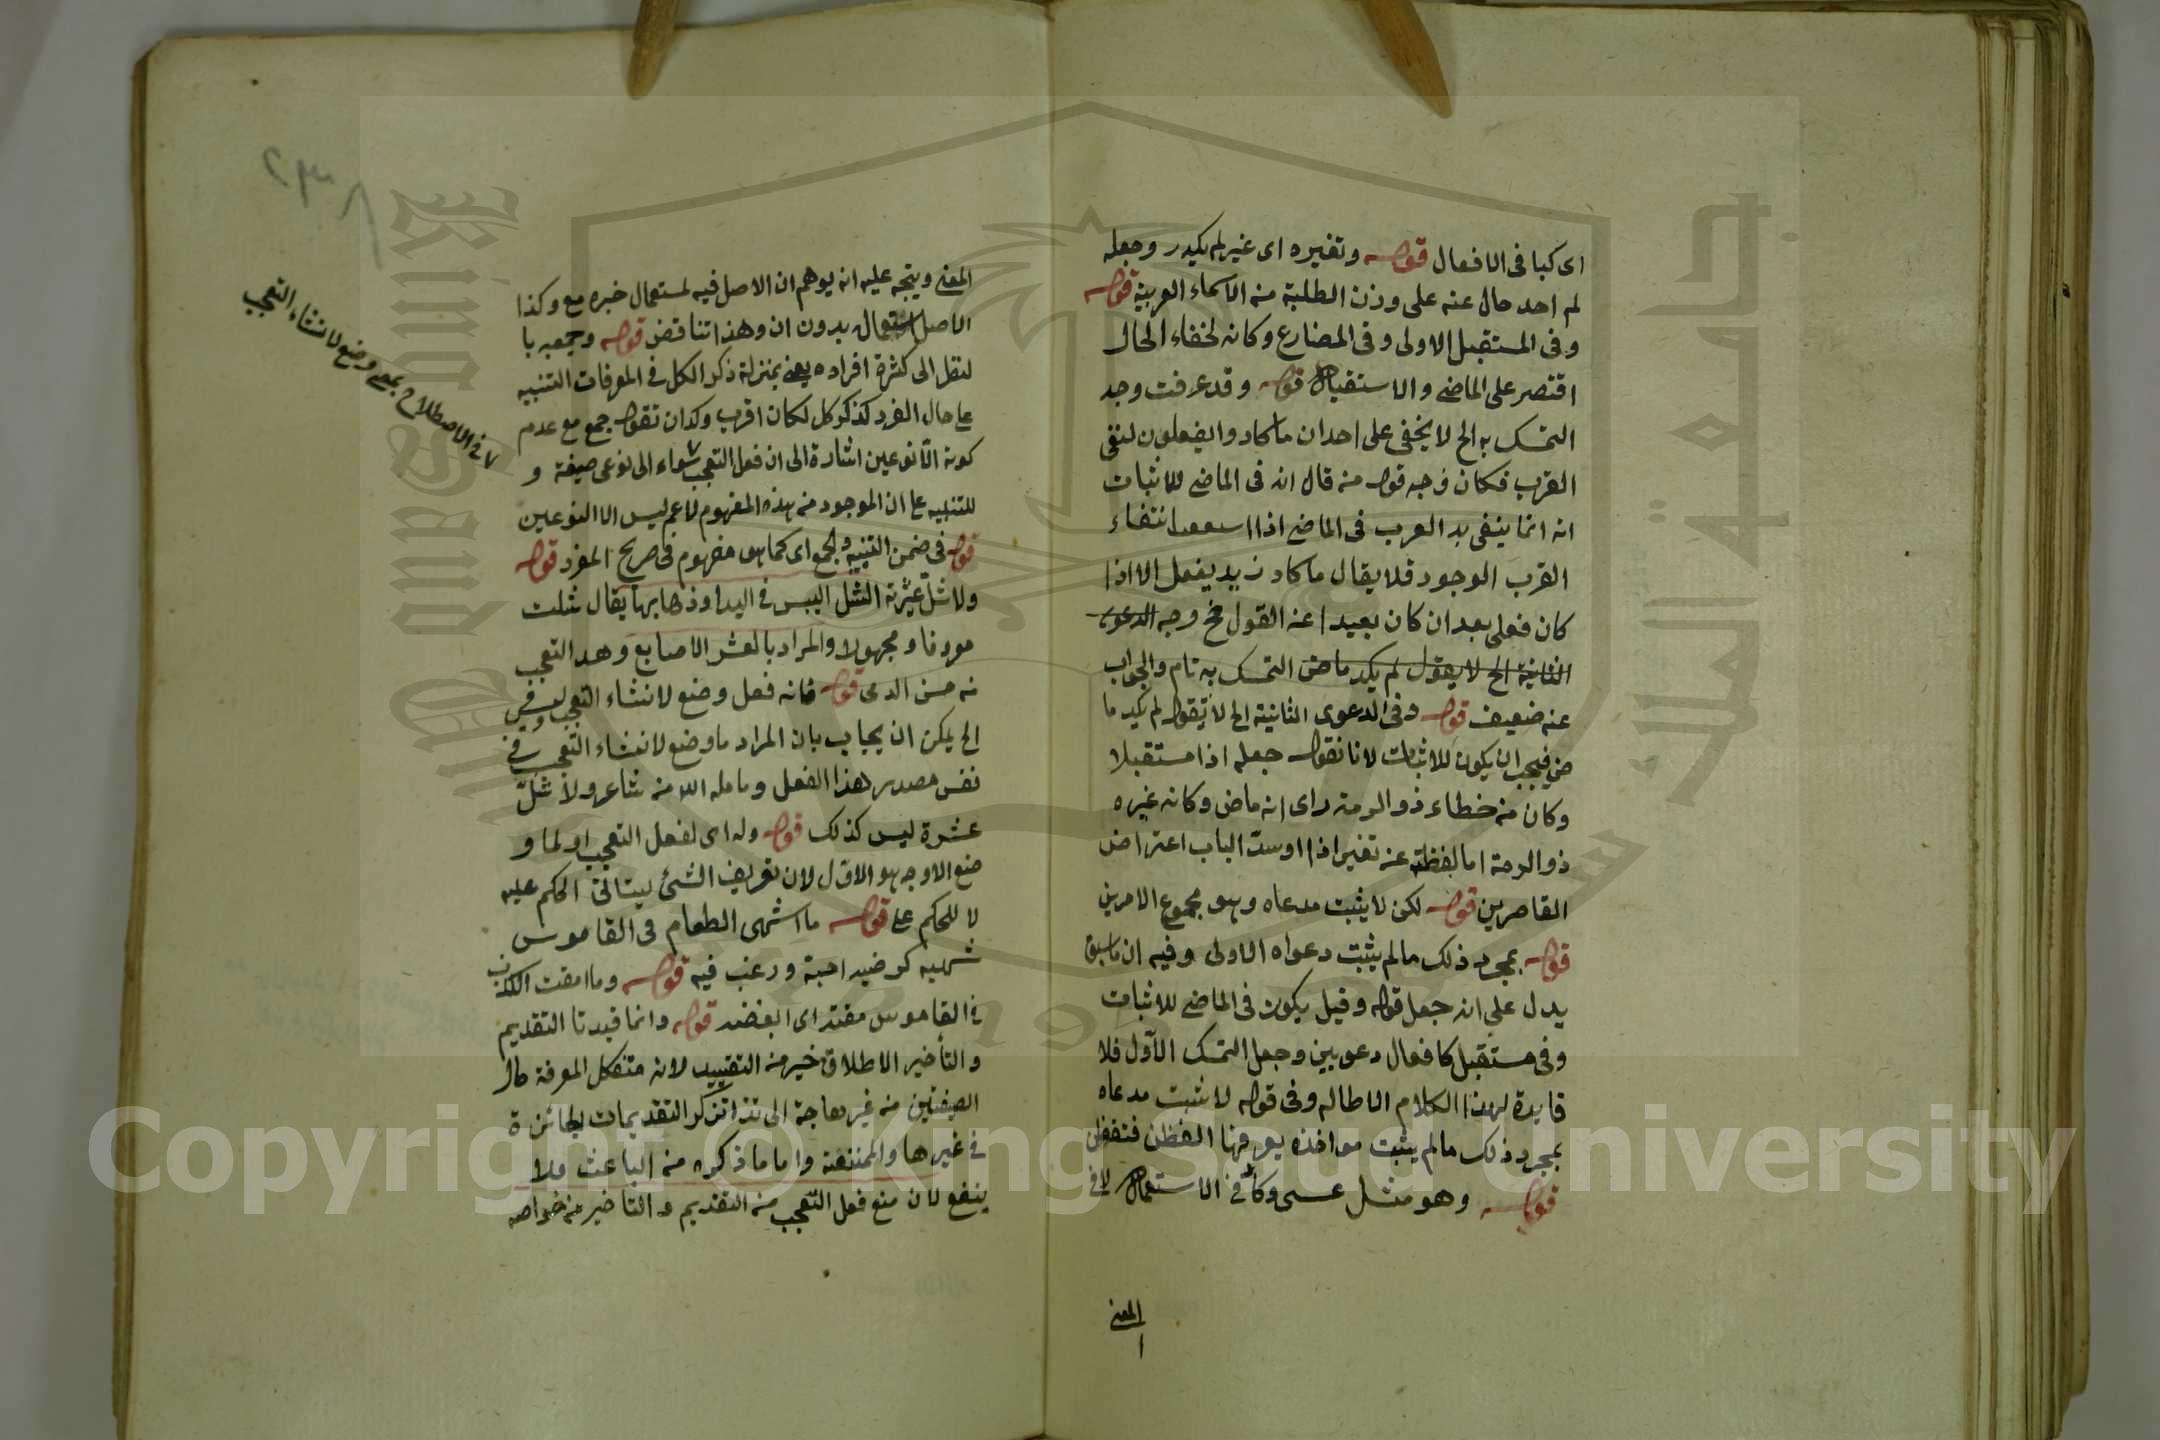 اى كبا فى الافعال قوله وتغيره اى غير لم يكدر وجعله
لم احد حال عنه على وزن الطلبة منه الاسماء العربية قوله
وفى المستقبل الاولى وفى المضارع وكانه لخفاء الحال
اقتصر على الماضى والاستقبال قوله وقد عرفت وجه
التمسك به الخ لا يخفى على احد ان ما كادوا يفعلون لنفى
القرب فكان وجه قوله منه قال انه فى الماضى للاثبات
انه انما ينفى به القرب فى الماضى اذا انتفاء
القرب الوجود فلا يقال ما كاد زيد يفعل الا اذا
كان فعلى بعد ان كان بعيدا عنه القول فح وجه الدعوى
الثانية الخ لا يقول لم يكد ماض التمسك به تام والجواب
عنه ضعيف قوله وفى الدعوى الثانية الخ لا تقول لم يكد ما
ض فيجب ان يكون للاثبات لانا نقول جعله اذا مستقبلا
وكان منه خطاء ذو الرمة راى انه ماض وكانه غيره
ذو الرمة اما لفظة عنه تغير اذا اوسد الباب اعتراض
القاصرين قوله لكن لا يثبت مدعاه وهو مجموع الامرين
قوله بمجرد ذلك ما لم يثبت دعواه الاولى وفيه ان ما سبق
يدل على انه جعل قوله وقيل يكون فى الماضى للاثبات
وفى مستقبل كافعال دعويين وجعل التمسك الاول فلا
فايدة لهذا الكلام الاطاله وفى قوله لا يثبت مدعاه
بمجرد ذلك ما لم يثبت مواخذه يعرفها الفطن فتفطن
قوله وهو مثل عسى وكاد فى الاستعمال لا فى
المعنى
المعنى ويتجه عليه انه يوهم ان الاصل فيه لستعمال خبره مع وكذا
الاصل استعمال بدون ان وهذا تناقض قوله وجمعه با
لنقل الى كثرة افراده يعنى بمنزلة ذكر الكل فى المعرفات التنبيه
على حال الفرد كذكر كل لكان اقرب وكدان تقول جمع مع عدم
كونه الا نوعين اشارة الى ان فعل التعجب الى نوعى صيغة و
للتنبيه على ان الموجود منه هذه المفهوم لاعم ليس الا النوعين
قوله فى ضمن التثنية والجمع اى كما هو مفهوم فى صريح المفرد قوله
ولا شل عشرته الشلل اليبس فى اليد او ذهابها يقال شلت
معروفا ومجهولا والمراد بالعشر الاصابع وهذا التعجب
منه حسن الدعى قوله فانه فعل وضع لانشاء التعجب
الخ يمكن ان يجاب بان المراد ما وضع لانشاء التعجب فى
نفس مصدر هذا الفعل وما مله الله منه شاعر ولا شل
عشرة ليس كذلك قوله وله اى لفعل التعجب او لما و
ضع الاوجه هو الاول لان تعريف الشئ ليتاتى الحكم عليه
لا للحكم على قوله ما اشهى الطعام فى القاموس
شهيه كرضيه احبه ورغب فيه قوله وما امقت الكذب
فى القاموس مقته اى ابغضه قوله وانما قيدنا التقديم
والتأخير الاطلاق خير منه التقييد لانه متفكل المعرفة حال
الصيغتين منه غير حاجة الى تذاكر التقديمات الجائزة
فى غيرها والممتنعة واما ما ذكره منه الباعث فلا
ينفع لان منع فعل التعجب منه التقديم والتأخير منه خواصه
٧ فى الاصطلاح وبمعنى وضع لانشاء التعجب
٢٣٨
Copyright © King Saud University
King Saud University
جامعة الملك سعود
1957